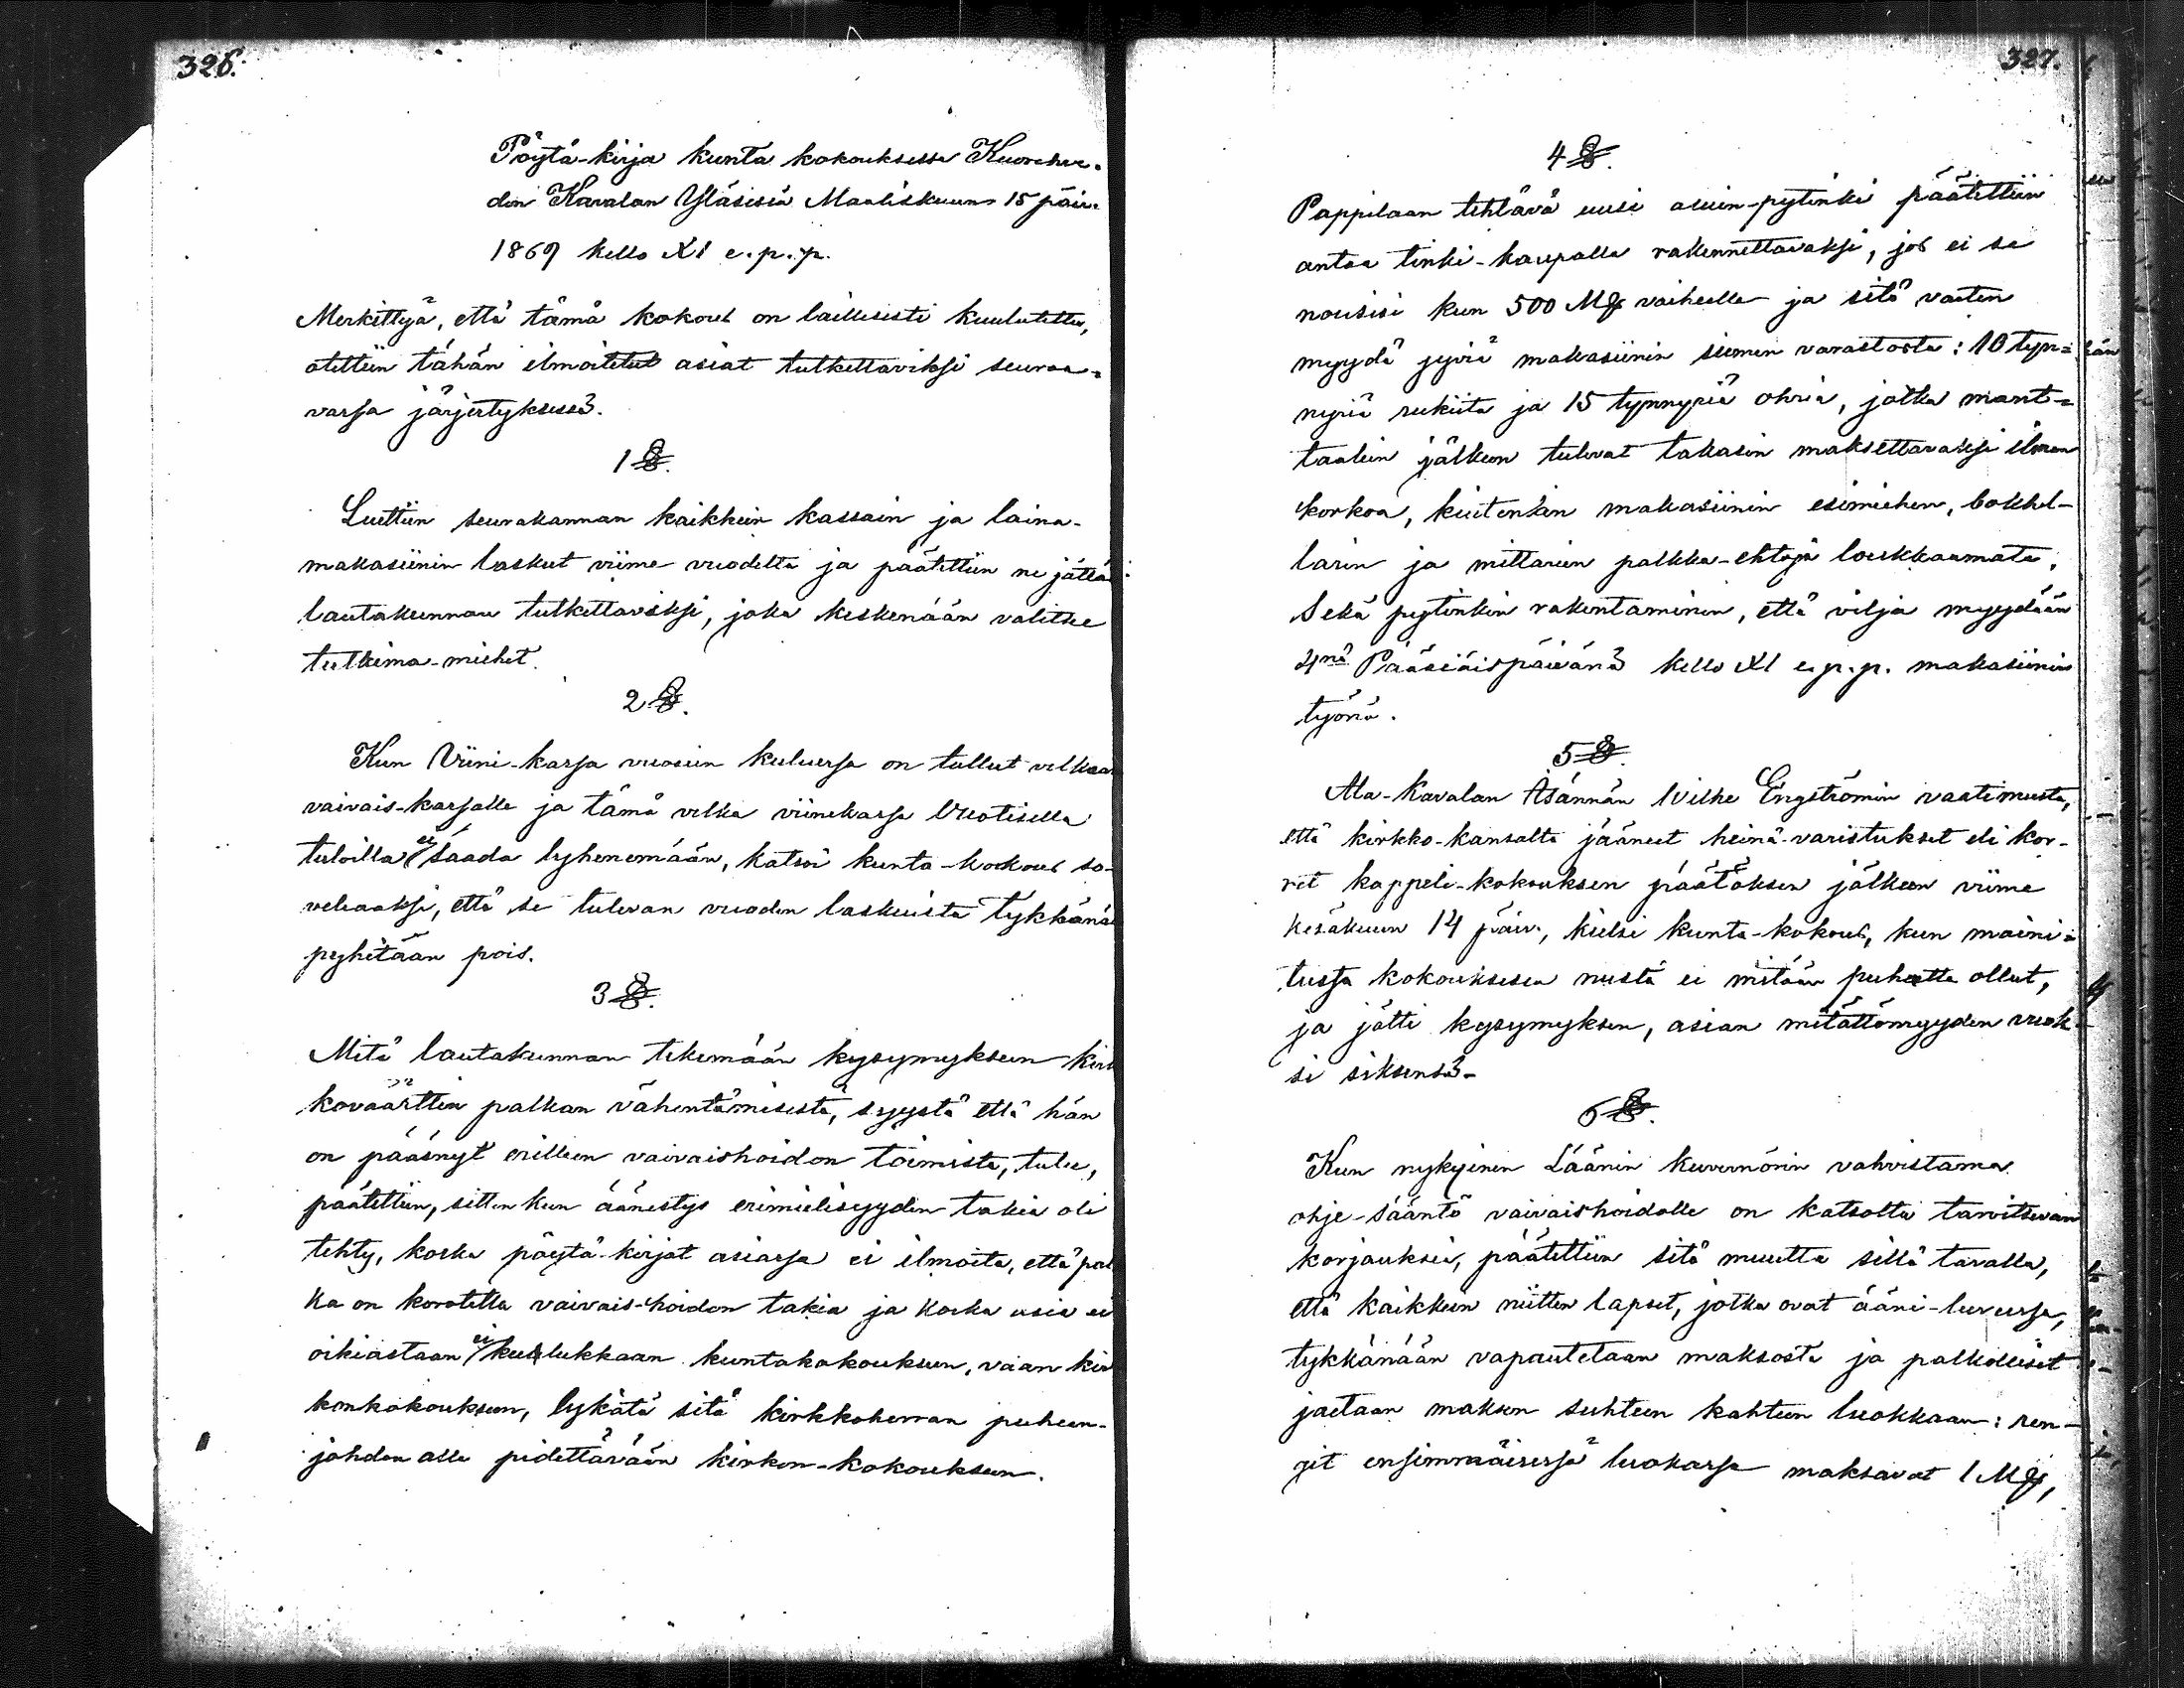 326.
Pöytä-kirja kunta kokouksessa Kuoreve-
din Kavalan Yläsisiä Maaliskuun 15 päiv.
1869 kello XI e.p.p.
Merkittyä, että tämä kokous on laillisesti kuulutettu,
otettiin tähän ilmoitetut asiat tutkittaviksi seuraa-
vassa järjestyksessä.
1 §.
Luettiin seurakannan kaikkein kassain ja laina-
makasiinin laskut viime vuodelta ja päätettiin ne jättää
lautakunnan tutkittaviksi, joka keskenään valitkee
tutkima-miehet.
2 §.
Kun Viini-kassa vuosien kuluessa on tullut velkaan
vaivais-kassalle ja tämä velka viinikassa vuotisella
tuloilla ei saada lyhenemään, katsoi kunta-kokous so-
veliaaksi, että se tulevan vuoden laskuista tykkänä
pyhitään pois.
3 §.
Mitä lautakunnan tekemään kysymykseen kirk
koväärttin palkan vähentämisestä, syystä että hän
on päässyt erilleen vaivaishoidon toimista, tulee,
päätettiin, sitten kun äänestys erimielisyyden takia oli
tehty, koska pöytä-kirjat asiassa ei ilmoita, että pal
ka on korotettu vaivais-hoidon takia ja koska asia ei
oikiastaan ei kuulukkaan kuntakokouksen, vaan kir
konkokouksen, lykätä sitä kirkkoherran puheen-
johdon alla pidettävään kirkon-kokouksen.
327.
4 §.
Pappilaan tehtävä uusi asuin-pytinki päätettiin
antaa tinki-kaupalla rakennettavaksi, jos ei se
nousisi kun 500 Mk vaiheelle ja sitä varten
myydä jyviä makasiinin siemen varastosta: 10 tyn-
nyriä rukiita ja 15 tynnyriä ohria, jotka mant-
taalein jälkeen tulevat takasin maksettavaksi ilman
korkoa, kuitenkin makasiinin esimiehen, bokhol-
larin ja mittarien palkka-ehtoja loukkaamata.
Sekä pytinkin rakentaminen, että vilja myydään
4nä Pääsiäispäivänä kello XI e.p.p. makasiinin
työnä.
5 §.
Ala-Kavalan Isännän Wilhe Engströmin vaatimusta,
että kirkko-kansalta jääneet heinä-varistukset eli kor-
ret kappeli-kokouksen päätöksen jälkeen viime
kesäkuun 14 päiv., kielsi kunta-kokous, kun maini-
tussa kokouksessa niistä ei mitään puhetta ollut,
ja jätti kysymyksen, asian mitättömyyden vuok-
si siksensä.
6 §.
Kun nykyinen Läänin kuvernörin vahvistama
ohje-sääntö vaivaishoidolle on katsottu tarvitsevan
korjauksia, päätettiin sitä muutta sillä tavalla,
että kaikkein niitten lapset, jotka ovat ääni-luvussa,
tykkänään vapautetaan maksosta ja palkolliset
jaetaan makson suhteen kahteen luokkaan: ren-
git ensimmäisessä luokassa maksavat 1 Mk,